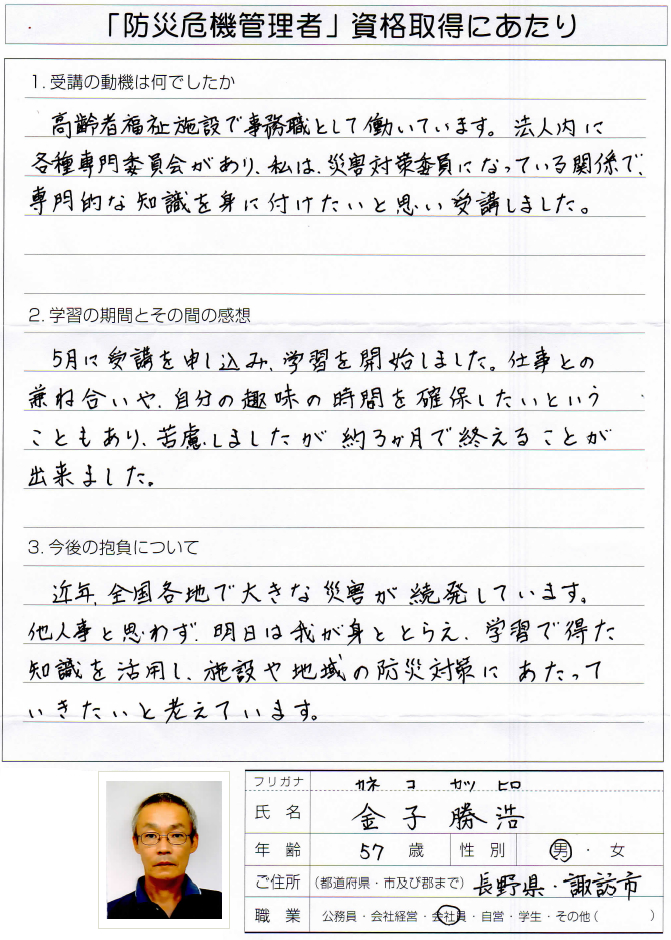 「防災危機管理者」資格取得にあたり
1. 受講の動機は何でしたか
高齢者福祉施設で事務職として働いています。法人内に
各種専門委員会があり、私は、災害対策委員になっている関係で、
専門的な知識を身に付けたいと思い受講しました。
2. 学習の期間とその間の感想
5月に受講を申し込み、学習を開始しました。仕事との
兼ね合いや、自分の趣味の時間を確保したいという
こともあり、苦慮しましたが約3ヶ月で終えることが
出来ました。
3. 今後の抱負について
近年、全国各地で大きな災害が続発しています。
他人事と思わず、明日は我が身ととらえ、学習で得た
知識を活用し、施設や地域の防災対策にあたって
いきたいと考えています。
フリガナ カネ コ カツ ヒロ
氏名 金子勝浩
年齢 57歳 性別 男・女
ご住所 (都道府県・市及び郡まで) 長野県・諏訪市
職業 公務員・会社経営・会社員・自営・学生・その他( )